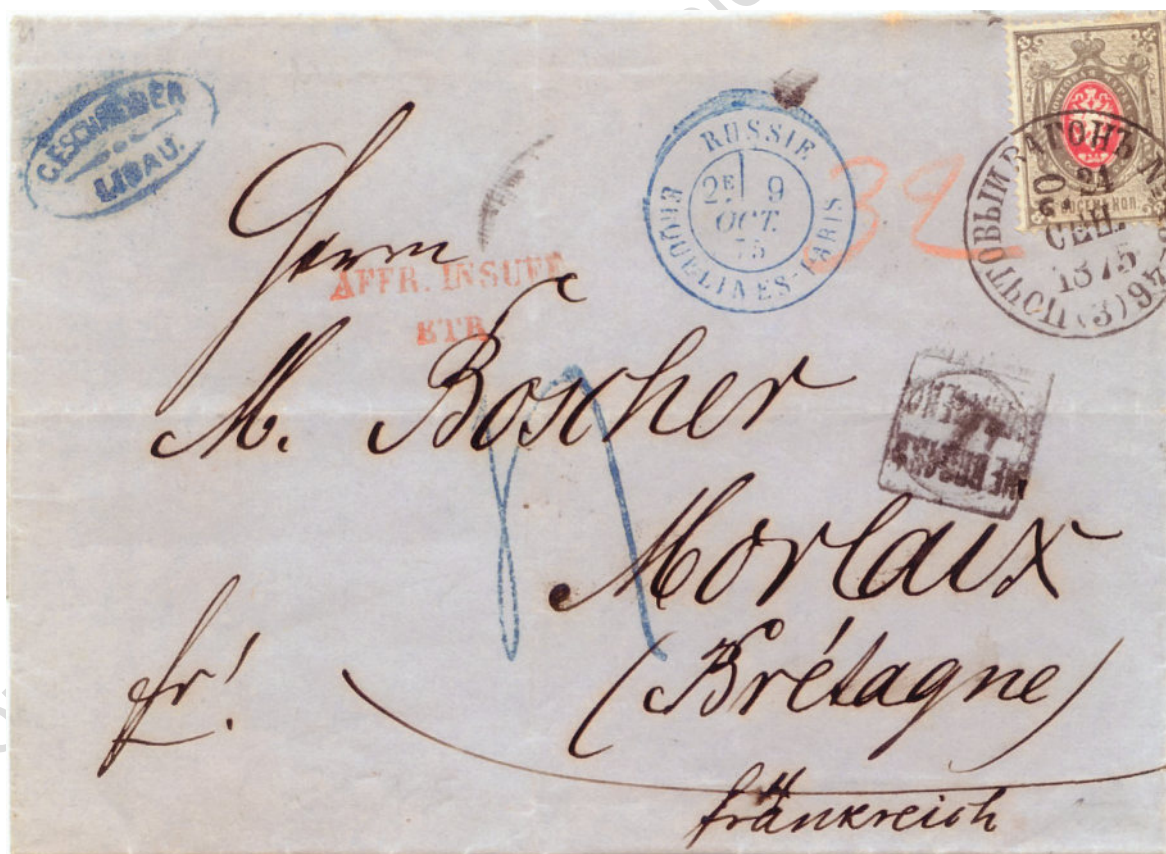 C. E. SCHNEIDER
LIBAU.
RUSSIE
2E 9
OCT.
75
ERQUELINES-PARIS
32
ПОЧТОВЫЙ ВАГОНЪ №
24
СЕН.
1875
(3)
ВОСЕМЬ КОП.
Herrn
AFFR. INSUFF
ETR
M. Boscher
Morlaix
fr!
(Brétagne)
fränkreich